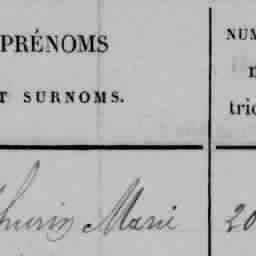 PRÉNOMS
T SURNOMS.
NUM
tric
thurin Marie
20